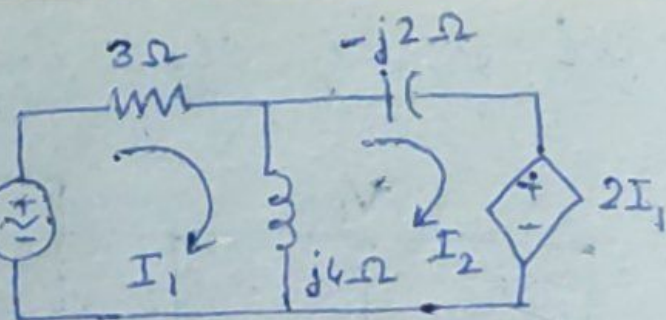 3Ω
-j2Ω
+
~
-
I₁
j4Ω
I₂
+
-
2I₁